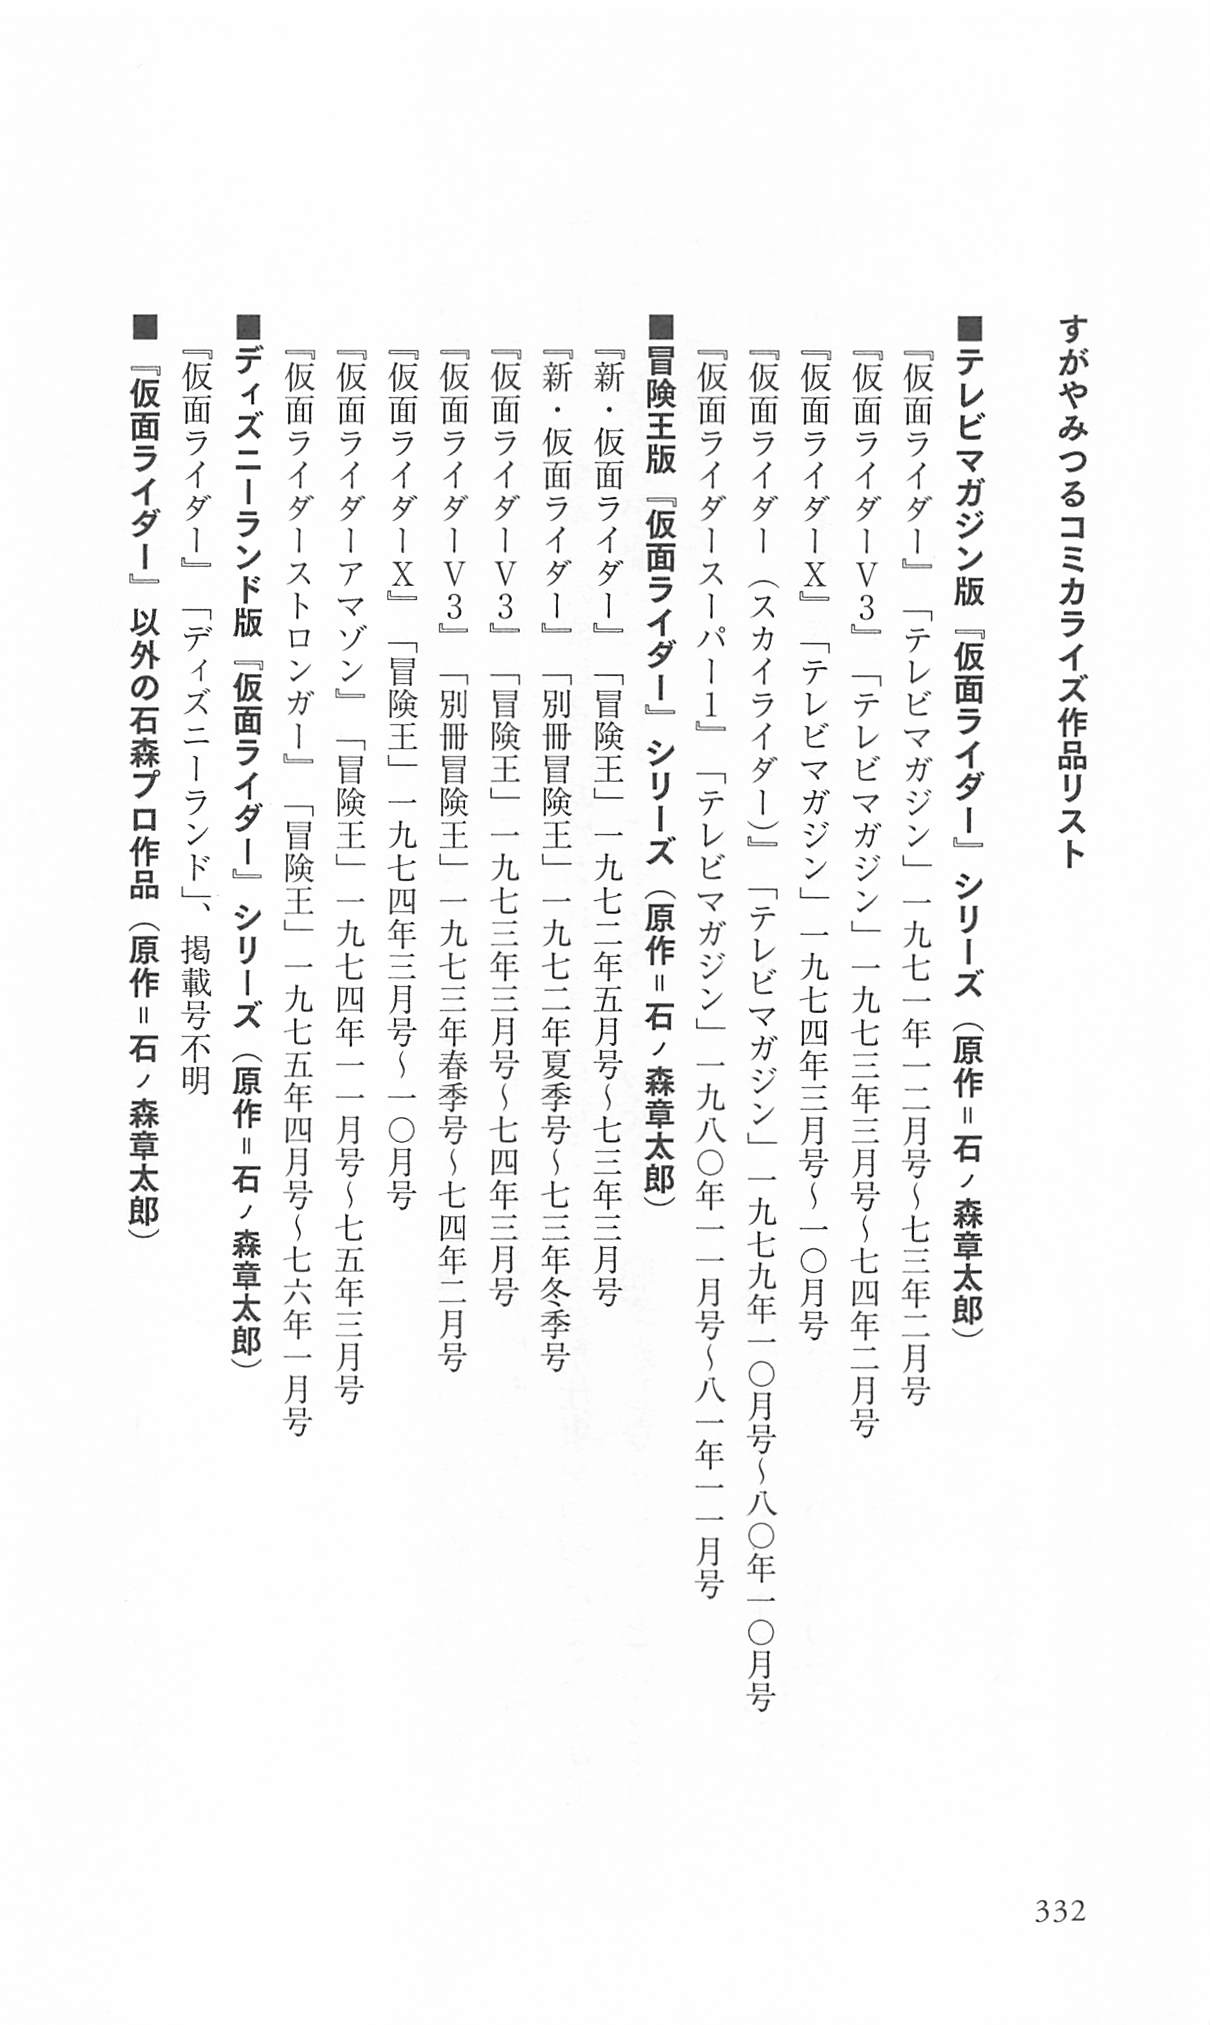 すがやみつるコミカライズ作品リスト
■テレビマガジン版『仮面ライダー』シリーズ（原作＝石ノ森章太郎）
『仮面ライダー』「テレビマガジン」一九七一年一二月号～七三年二月号
『仮面ライダーV3』「テレビマガジン」一九七三年三月号～七四年二月号
『仮面ライダーX』「テレビマガジン」一九七四年三月号～一〇月号
『仮面ライダー（スカイライダー）』「テレビマガジン」一九七九年一〇月号～八〇年一〇月号
『仮面ライダースーパー1』「テレビマガジン」一九八〇年一一月号～八一年一一月号
■冒険王版『仮面ライダー』シリーズ（原作＝石ノ森章太郎）
『新・仮面ライダー』「冒険王」一九七二年五月号～七三年三月号
『新・仮面ライダー』「別冊冒険王」一九七二年夏季号～七三年冬季号
『仮面ライダーV3』「冒険王」一九七三年三月号～七四年三月号
『仮面ライダーV3』「別冊冒険王」一九七三年春季号～七四年二月号
『仮面ライダーX』「冒険王」一九七四年三月号～一〇月号
『仮面ライダーアマゾン』「冒険王」一九七四年一一月号～七五年三月号
『仮面ライダーストロンガー』「冒険王」一九七五年四月号～七六年一月号
■ディズニーランド版『仮面ライダー』シリーズ（原作＝石ノ森章太郎）
『仮面ライダー』「ディズニーランド」、掲載号不明
■『仮面ライダー』以外の石森プロ作品（原作＝石ノ森章太郎）
332